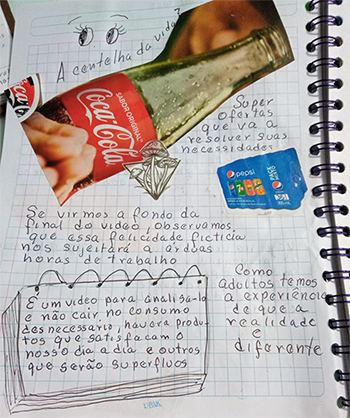 A centelha da vida?
Coca-Cola
SABOR ORIGINAL
Super
ofertas
que va a
resolver suas
necessidades
pepsi
Se virmos a fondo da
final do video, observamos
que assa falicidade ficticia
nos sujeitará a árduas
horas de trabalho
E um video para analisa-lo
e não cair no consumo
desnecessario, havera produ-
tos que satisfacam o
nosso dia a dia e outros
que serão superfluos
Como
adultos temos
a experiência
de que a
realidade
e
diferente